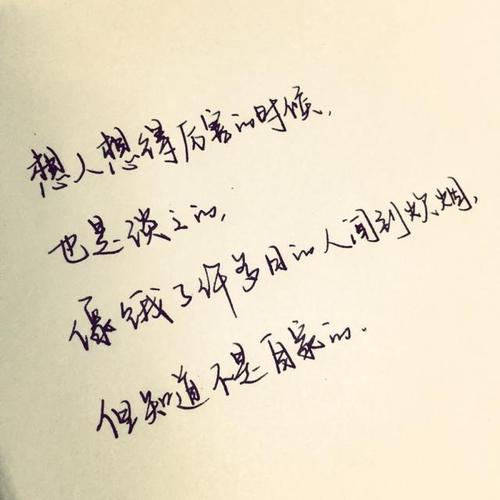 想人想得厉害的时候,
也是淡之的,
像饿了许多日的人闻到炊烟,
但知道不是自家的.